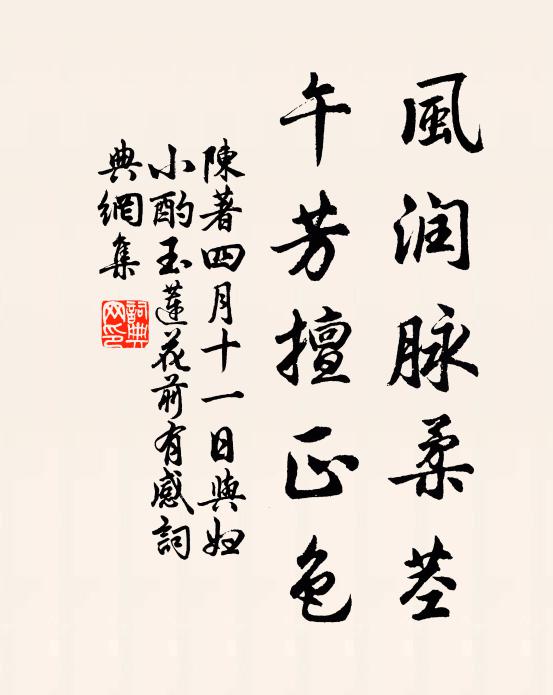 風润脉柔茎
午芳擅正色
陳著四月十一日與妇
小酌玉蓮花前有感詞
典網集
詞典网印